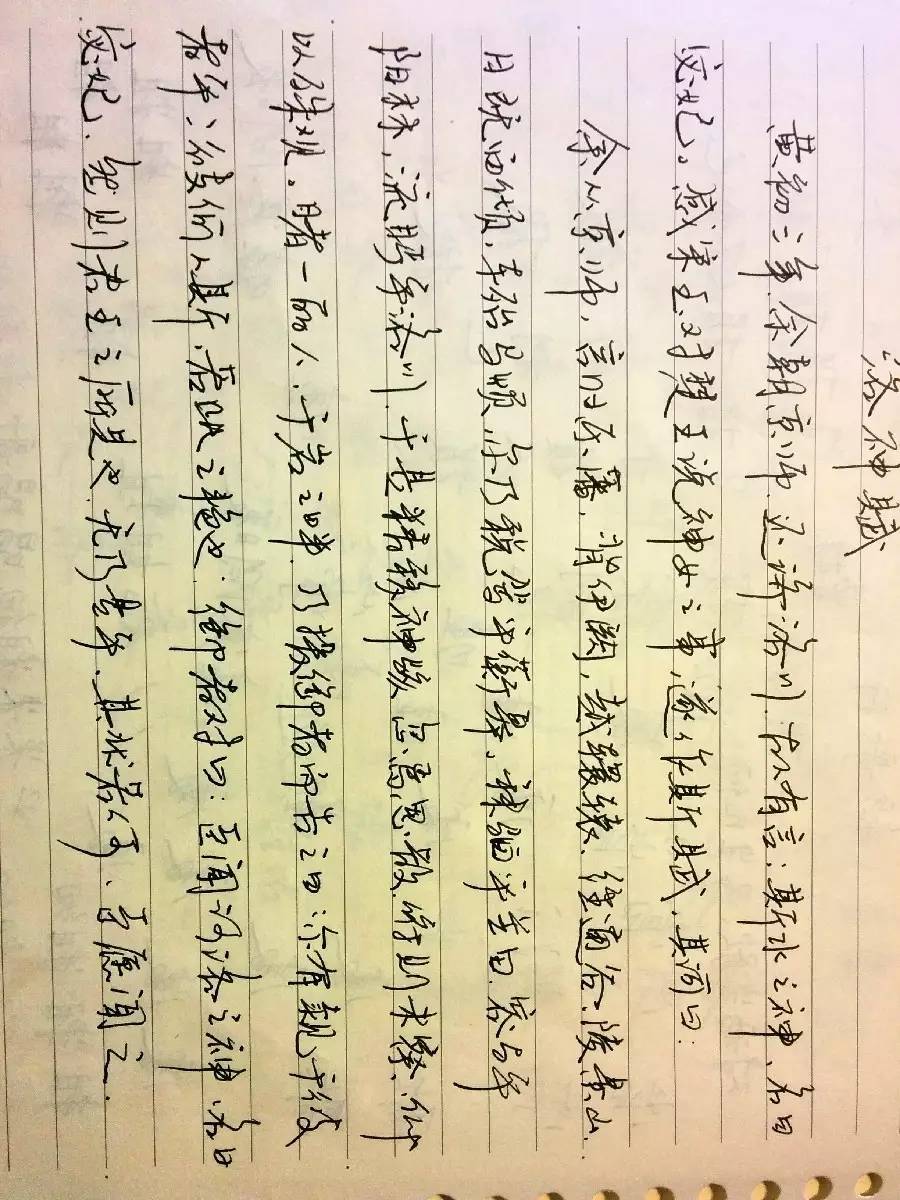 洛神赋
黄初三年,余朝京师,还济洛川。古人有言:斯水之神,名曰
宓妃。感宋玉对楚王说神女之事,遂作斯赋,其词曰:
余从京师,言归东藩,背伊阙,越轘辕,经通谷,陵景山.
日既西倾,车殆马烦,尔乃税驾乎蘅皋,秣驷乎芝田,容与乎
阳林,流眄乎洛川.于是精移神骇,忽焉思散.俯则未察,仰
以殊观。睹一丽人,于岩之畔.乃援御者而告之曰:尔有觌于彼
者乎?彼何人斯,若此之艳也.御者对曰:臣闻河洛之神,名曰
宓妃,然则君王之所见也,无乃是乎,其状若何,吾愿闻之.